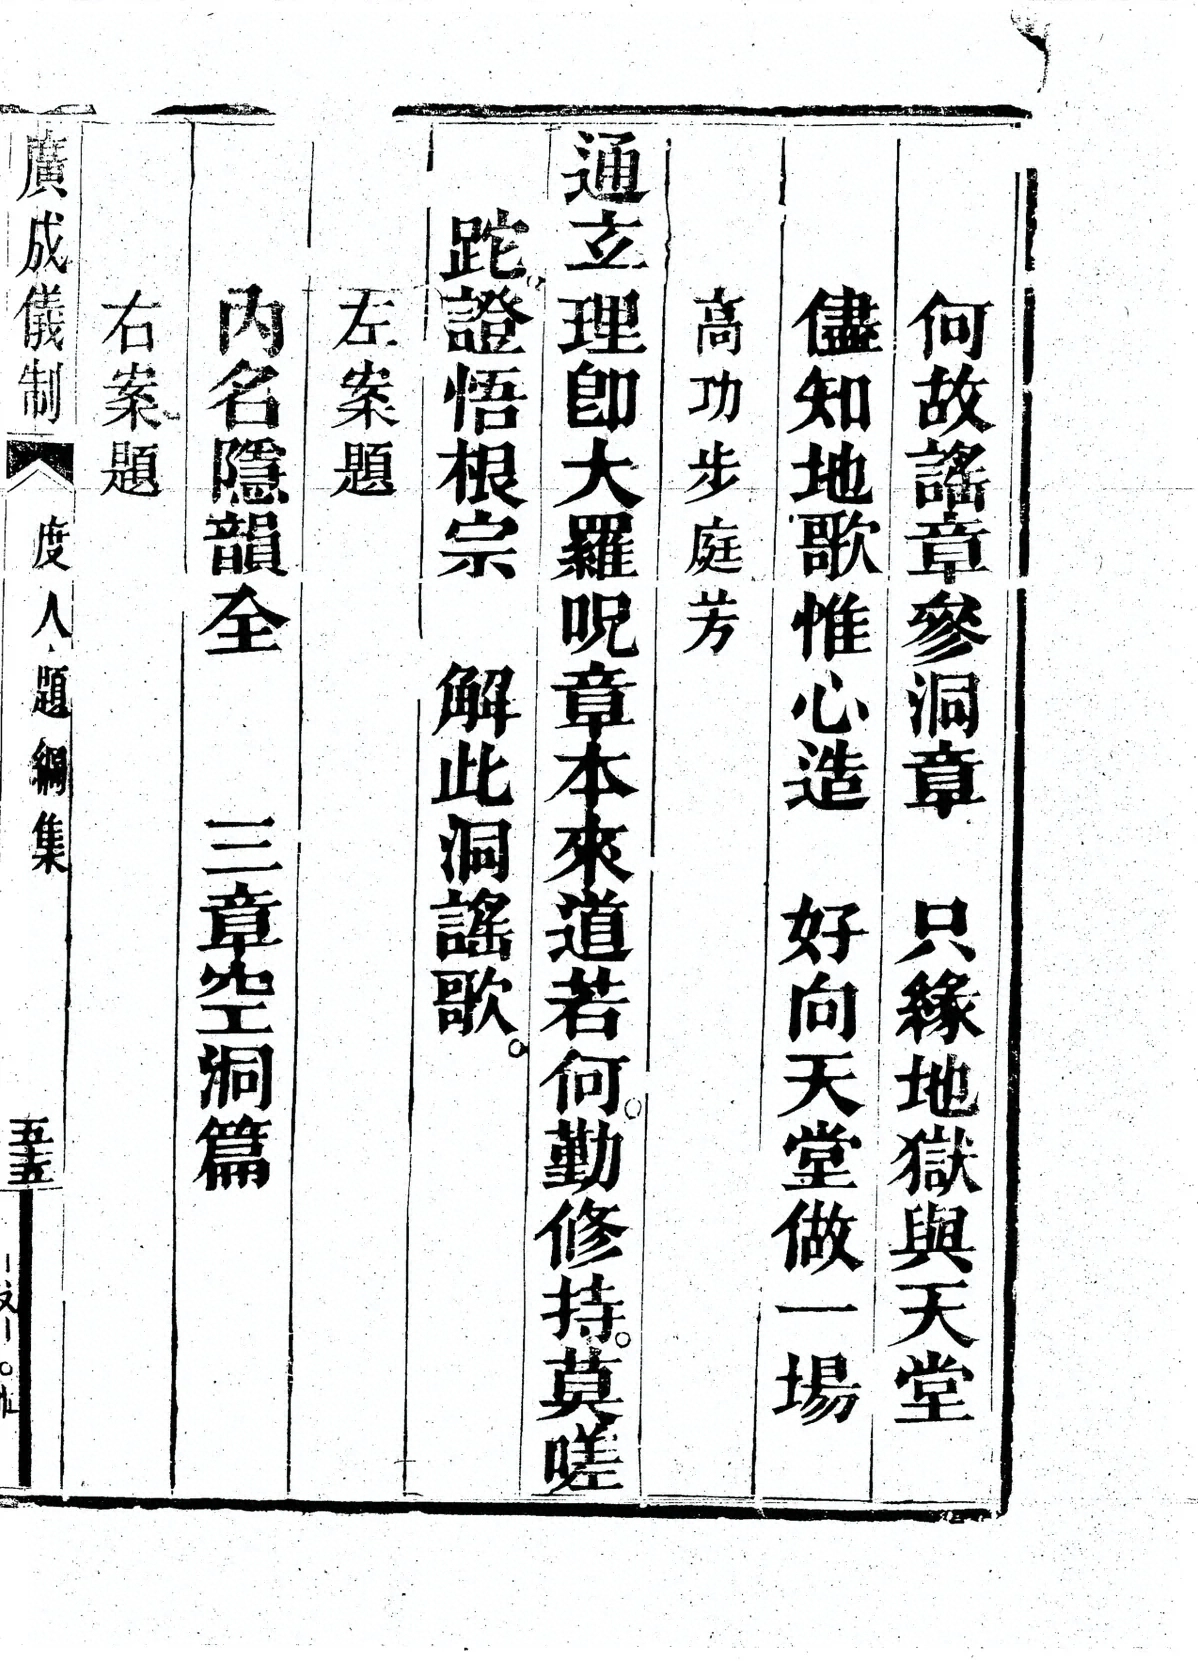 何故謠章參洞章　只緣地獄與天堂
儘知地歌惟心造　好向天堂做一場
高功步庭芳
通玄理卽大羅呪章本來道若何。勤修持。莫嗟
跎。證悟根宗　解此洞謠歌。
左案題
內名隱韻全　三章空洞篇
右案題
廣成儀制　度人題綱集　五十五